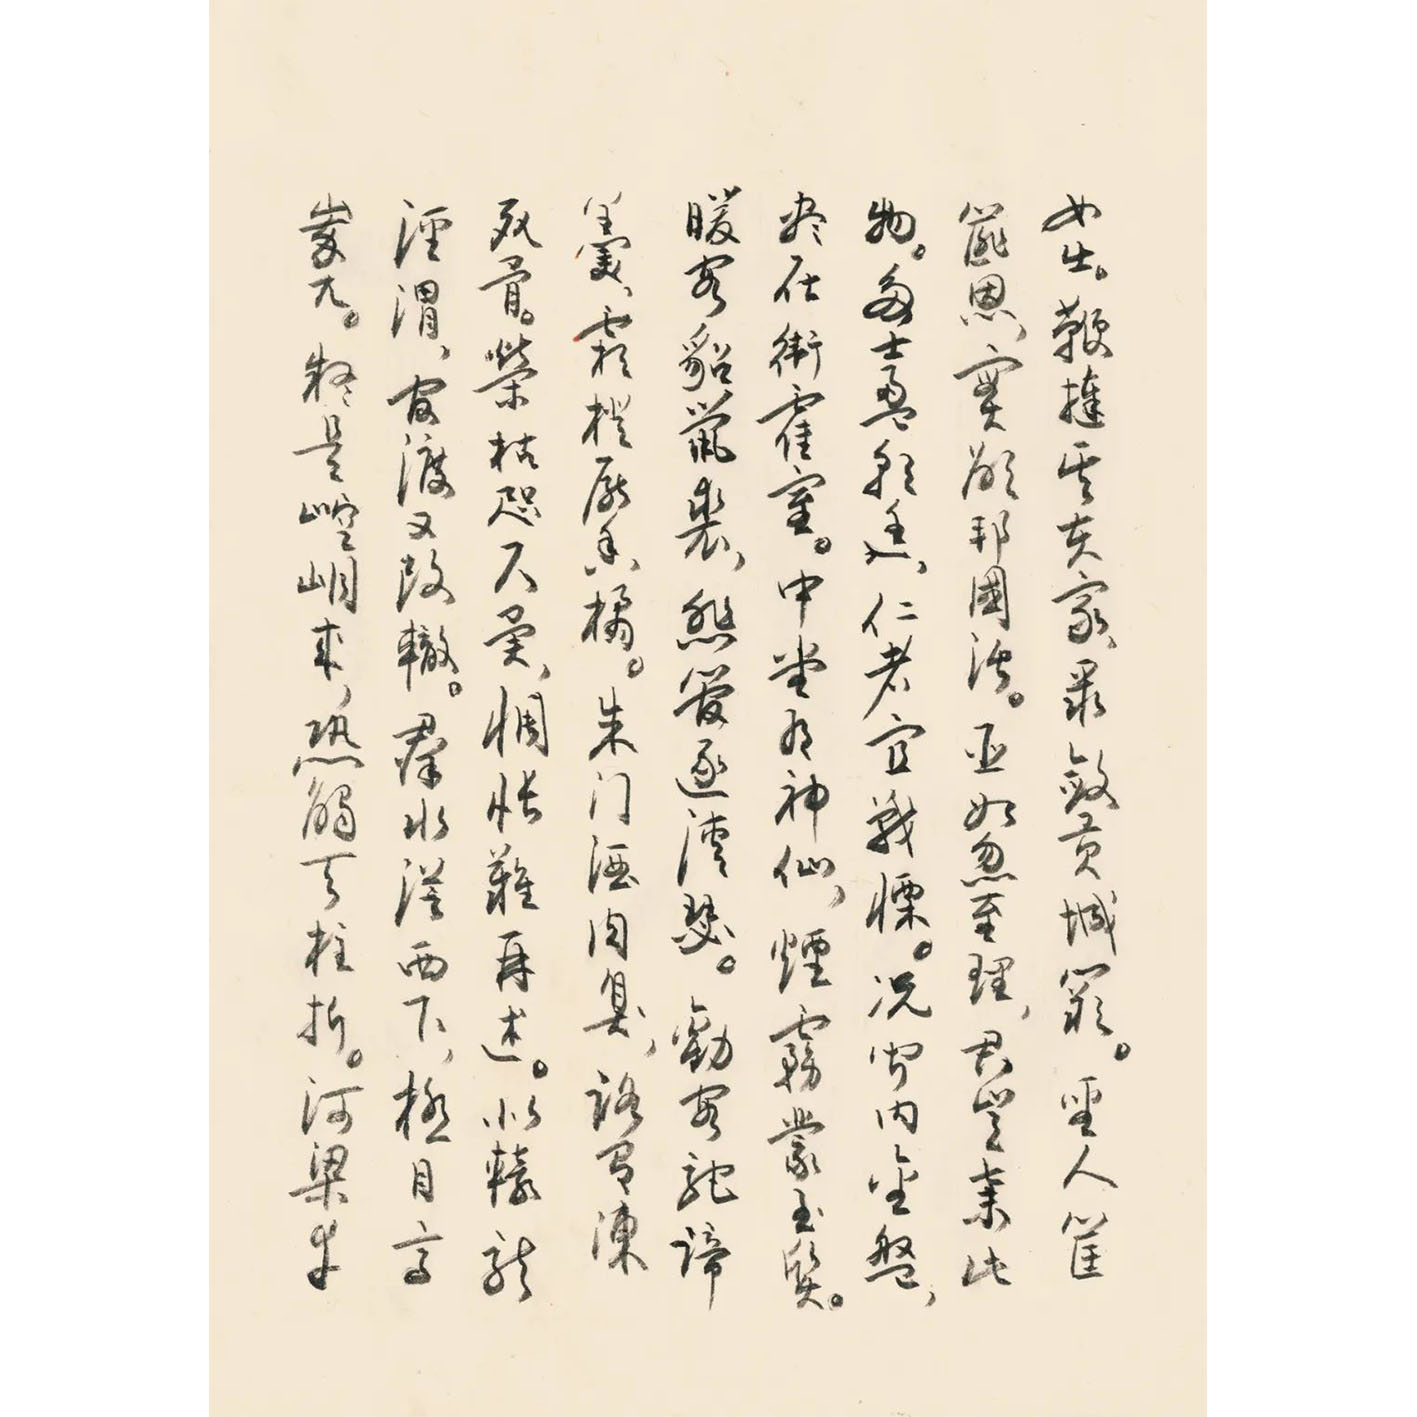 女出。鞭撻其夫家,聚斂貢城闕。聖人筐
篚恩,實願邦國活。臣如忽至理,君豈棄此
物。多士盈朝廷,仁者宜戰慄。況聞內金盤,
盡在衛霍室。中堂有神仙,煙霧蒙玉質。
暖客貂鼠裘,悲管逐清瑟。勸客駝蹄
羹,霜橙壓香橘。朱門酒肉臭,路有凍
死骨。榮枯咫尺異,惆悵難再述。北轅就
涇渭,官渡又改轍。群水從西下,極目高
崒兀。疑是崆峒來,恐觸天柱折。河梁幸